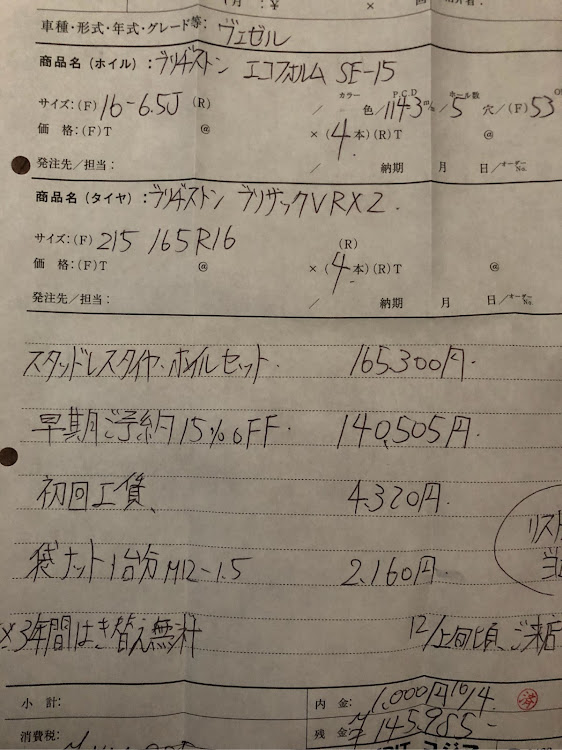 月：¥ × 回
車種・形式・年式・グレード等： ヴェゼル
商品名（ホイル）： ブリヂストン エコフォルム SE-15
サイズ：（F） 16-6.5J （R） ／ カラー 色／ P.C.D 114.3 m/m／ ホール数 5 穴／（F） 53
価 格：（F）T @ ×（4本）（R）T @
発注先／担当： ／ 納期 月 日／オーダーNo.
商品名（タイヤ）： ブリヂストン ブリザックVRX2.
サイズ：（F） 215 165R16 （R）
価 格：（F）T @ ×（4本）（R）T @
発注先／担当： ／ 納期 月 日／オーダーNo.
スタッドレスタイヤ・ホイルセット 165,300円
早期ご予約15%OFF. 140,505円
初回工賃、 4,320円
リスト
袋ナット1台分M12-1.5 2,160円
※3年間はき替え無料 12/上旬頃、ご来店
小 計： 内 金： 1,000円 10/4 済
消費税： 残 金： ¥145,985-